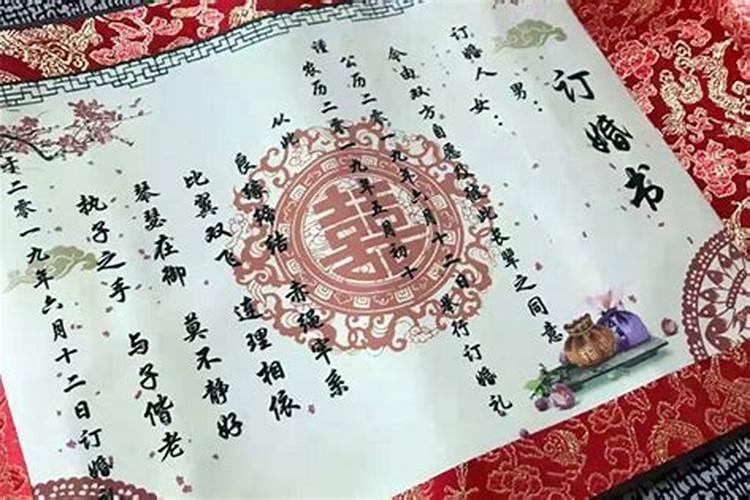 订婚书
男：
订婚人女：
今由双方自愿及
彼此长辈之同意
公历二零一九年六月十二日举行订婚礼
谨农历二零一九年五月初十
从此
良缘缔结 赤绳牢系
比翼双飞 连理相依
琴瑟在御 莫不静好
执子之手 与子偕老
于二零一九年六月十二日订婚